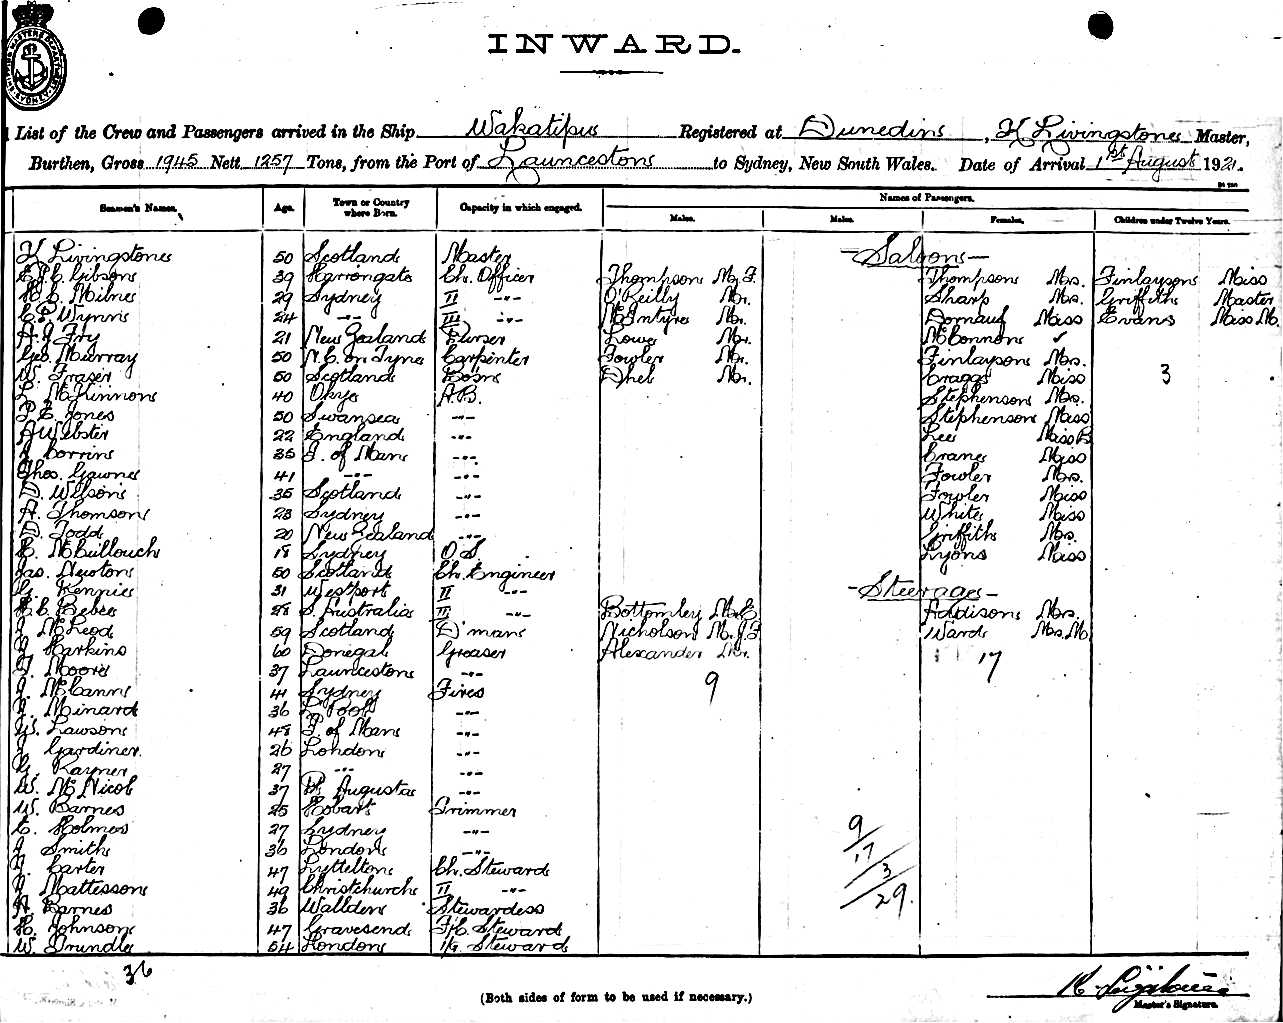 INWARD.
List of the Crew and Passengers arrived in the Ship Wakatipu Registered at Dunedin, Livingstone Master,
Burthen, Gross 1945 Nett 1257 Tons, from the Port of Launceston to Sydney, New South Wales. Date of Arrival 1st August 1921.
Seamen's Names. Age. Town or Country where Born. Capacity in which engaged. Names of Passengers.
Males. Males. Females. Children under Twelve Years.
Livingstone 50 Scotland Master -Saloon-
Gibson 39 Harrongate Ch. Officer Thompson Mr. F. Thompson Mrs. Finlayson Miss
Milne 29 Sydney II -"- O'Reilly Mr. Sharp Mrs. Griffiths Master
Wynn 24 -"- III -"- McIntyre Mr. Miss Evans Miss M.
Fry 21 New Zealand Purser Lowe Mr. McConnon ✓
Geo. Murray 50 N.C. on Tyne Carpenter Fowler Mr. Finlayson Mrs.
W. Fraser 50 Scotland Bo'sn Mr. Craggs Miss 3
McKinnon 40 A.B. Stephenson Mrs.
Jones 50 Swansea -"- Stephenson Miss
A Webster 22 England -"- Lee Miss B
Corrin 35 I. of Man -"- Crane Miss
Thos. Gawne 41 -"- -"- Fowler Mrs.
D. Wilson 35 Scotland -"- Fowler Miss
A. Thomson 28 Sydney -"- White Miss
D. Todd 20 New Zealand -"- Griffiths Mrs.
McCullouch 18 Sydney O.S. Lyons Miss
Jas. Newton 50 Scotland Ch. Engineer
31 Westport II -"- -Steerage-
Bebee 28 S. Australia III -"- Bottomley Mr. E Addison Mrs.
McLeod 59 Scotland D'man Nicholson M. J. F Ward Mrs. M
Harkins 60 Donegal Greaser Alexander Mr. 17
Moore 37 Launceston -"- 9
McCann 41 Sydney Fires
Minard 36 L'Pool -"-
W. Lawson 48 I. of Man -"-
Gardiner 26 London -"-
Rayner 27 -"- -"-
W. McNicol 37 Pt. Augusta -"-
W. Barnes 25 Hobart Trimmer
Holmes 27 Sydney -"- 9
Smith 36 London -"- 17
Carter 47 Lyttelton Ch. Steward 3
Mattesson 49 Christchurch II -"- 29.
Barnes 36 Stewardess
Johnson 47 Gravesend F/C. Steward
W. Trundle 54 London Steward
36
(Both sides of form to be used if necessary.)
Master's Signature.